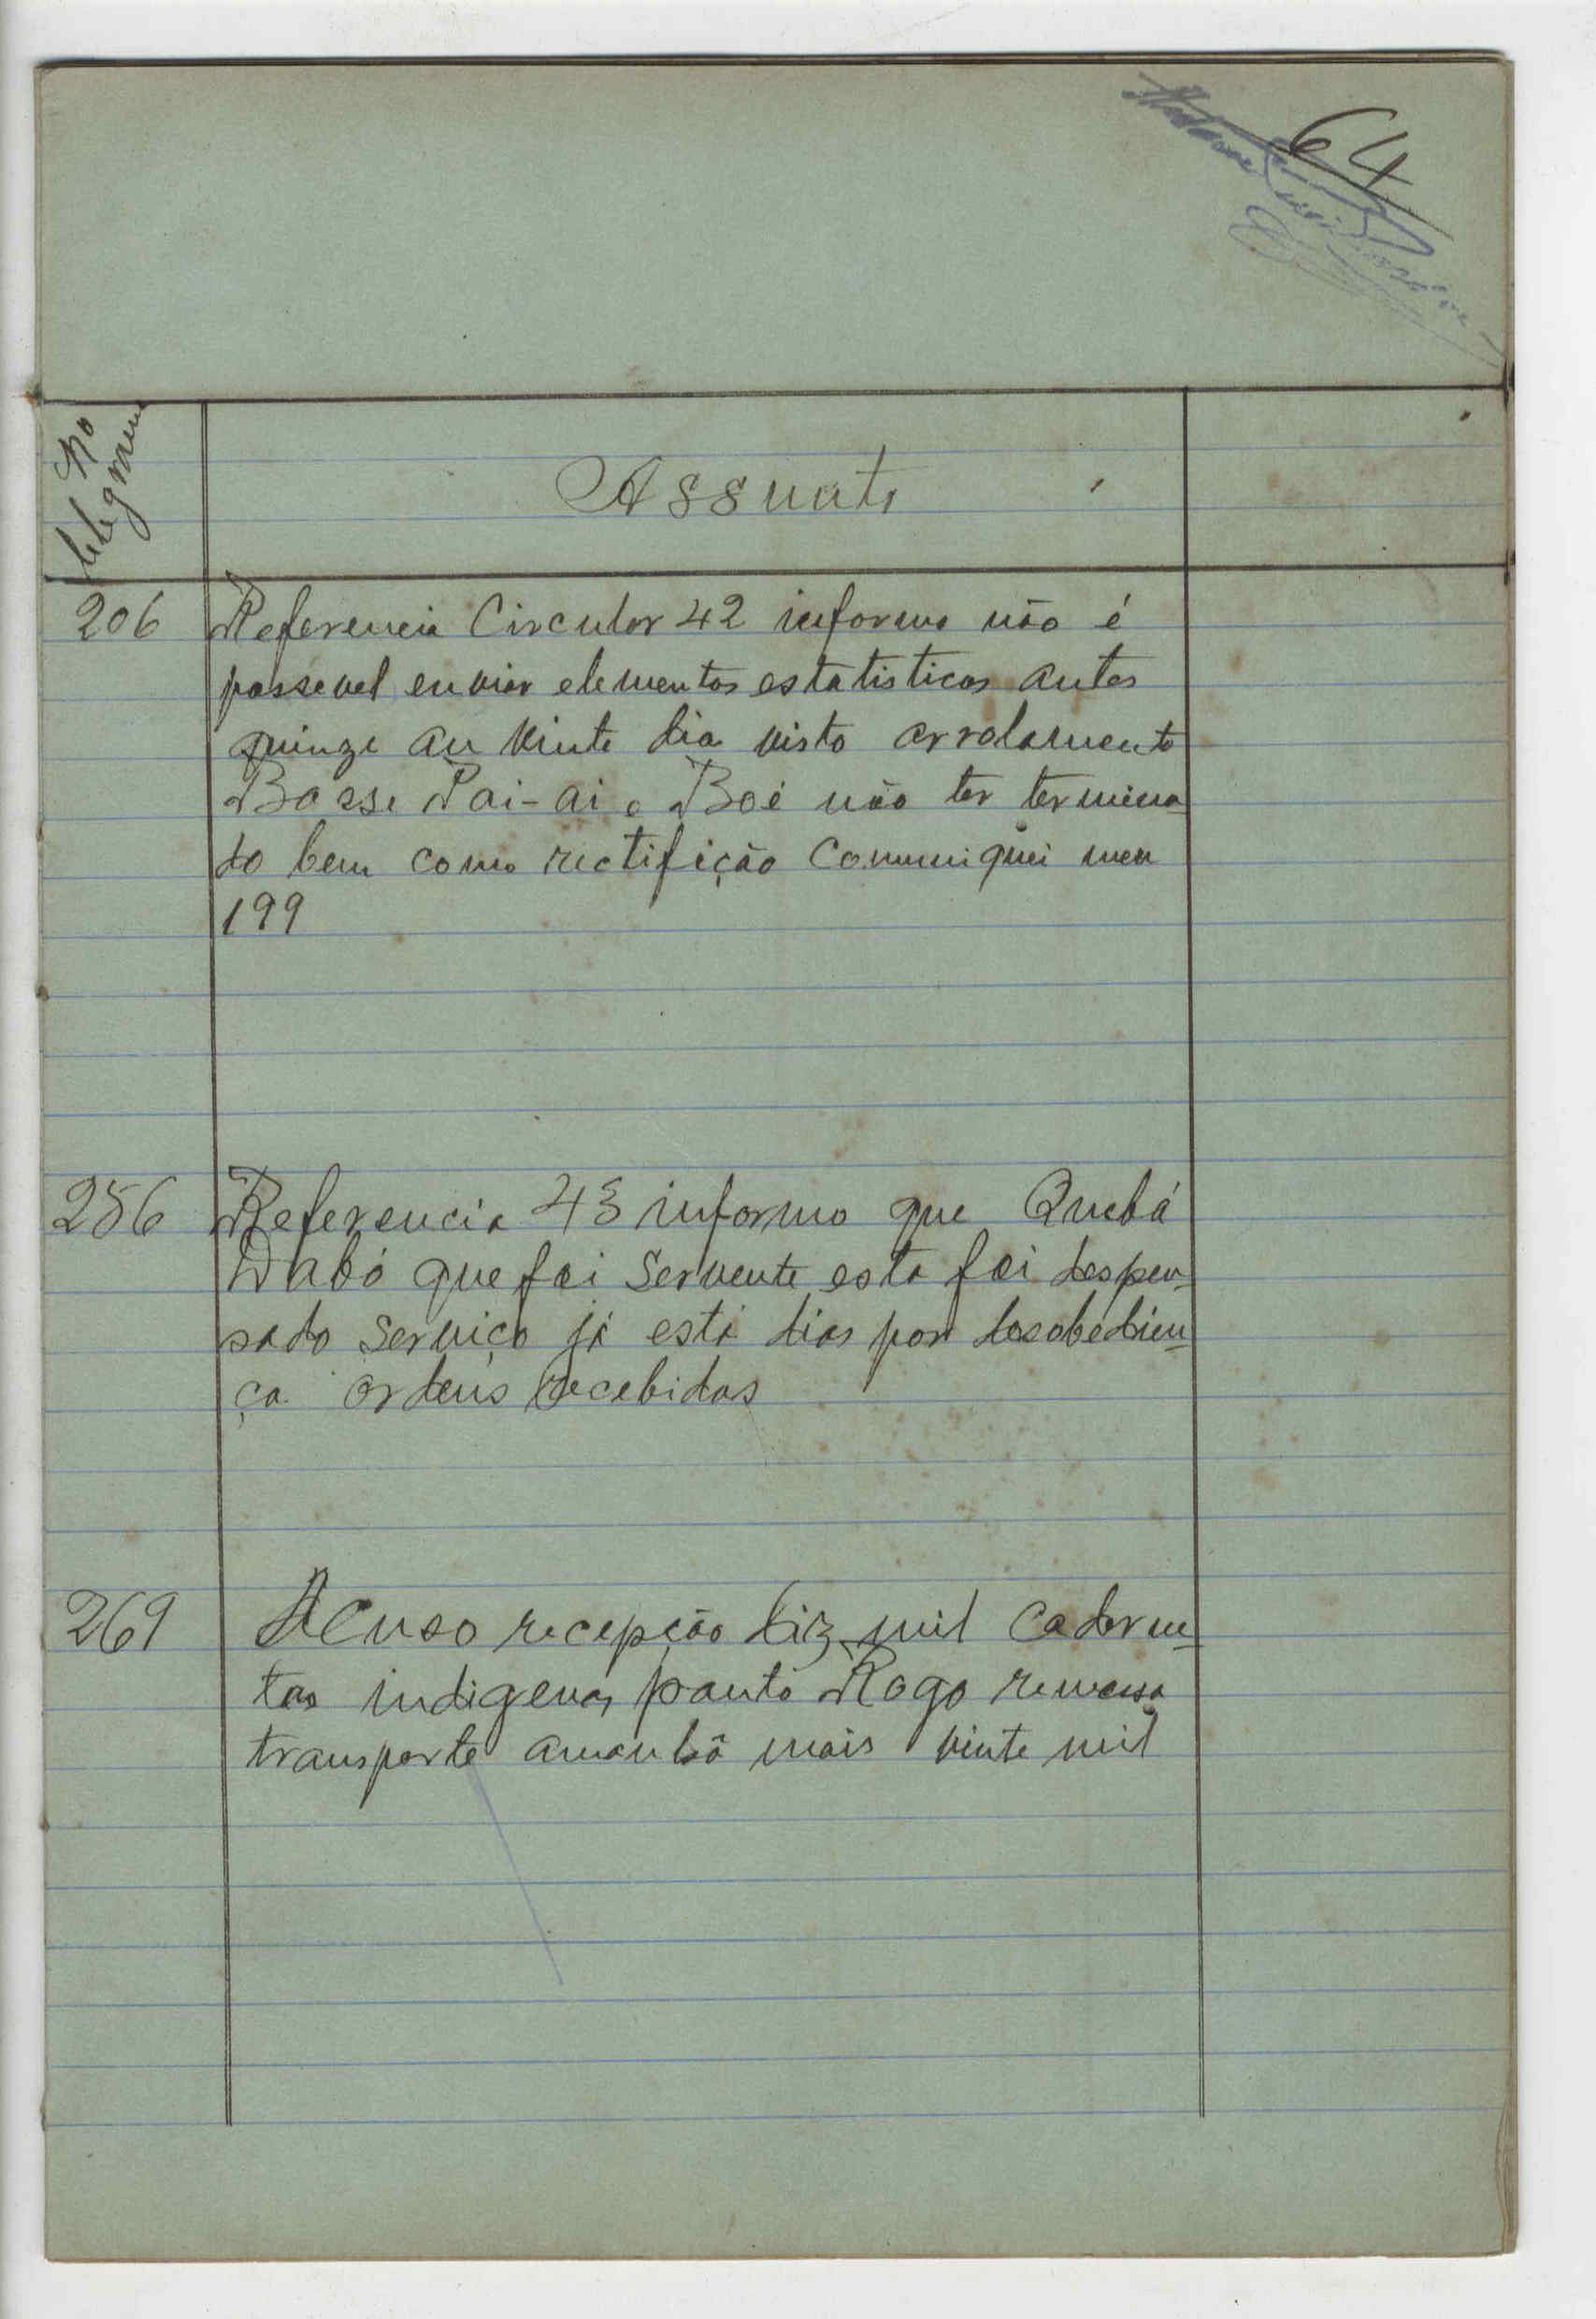 64
No telegrama
Assunto
206 Referencia Circular 42 informo não é
possevel enviar elementos estatisticos antes
quinze au vinte dia visto arrolamento
Basse Pai-ai e Boé não ter termina
do bem como rectifição comuniquei meu
199
256 Referencia 43 informo que Quebá
Dabó que foi servente esta foi despen-
sado serviço já está dias por desobedien-
ça ordens recebidas
269 Acuso recepção diz mil caderne-
tas indigenas ponto Rogo remessa
transporte amanhã mais vinte mil